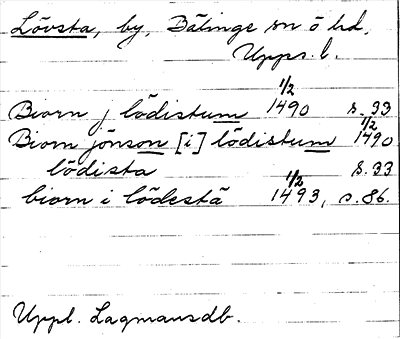 Lövsta, by, Bälinge sn o hd,
Upps. l.
Biorn j lödistum 1/2 1490 s. 33
Biorn jönson [i] lödistum 1/2 1490
lödista s. 33
biorn i lödestä 1/2 1493, s. 86.
Uppl. Lagmansdb.